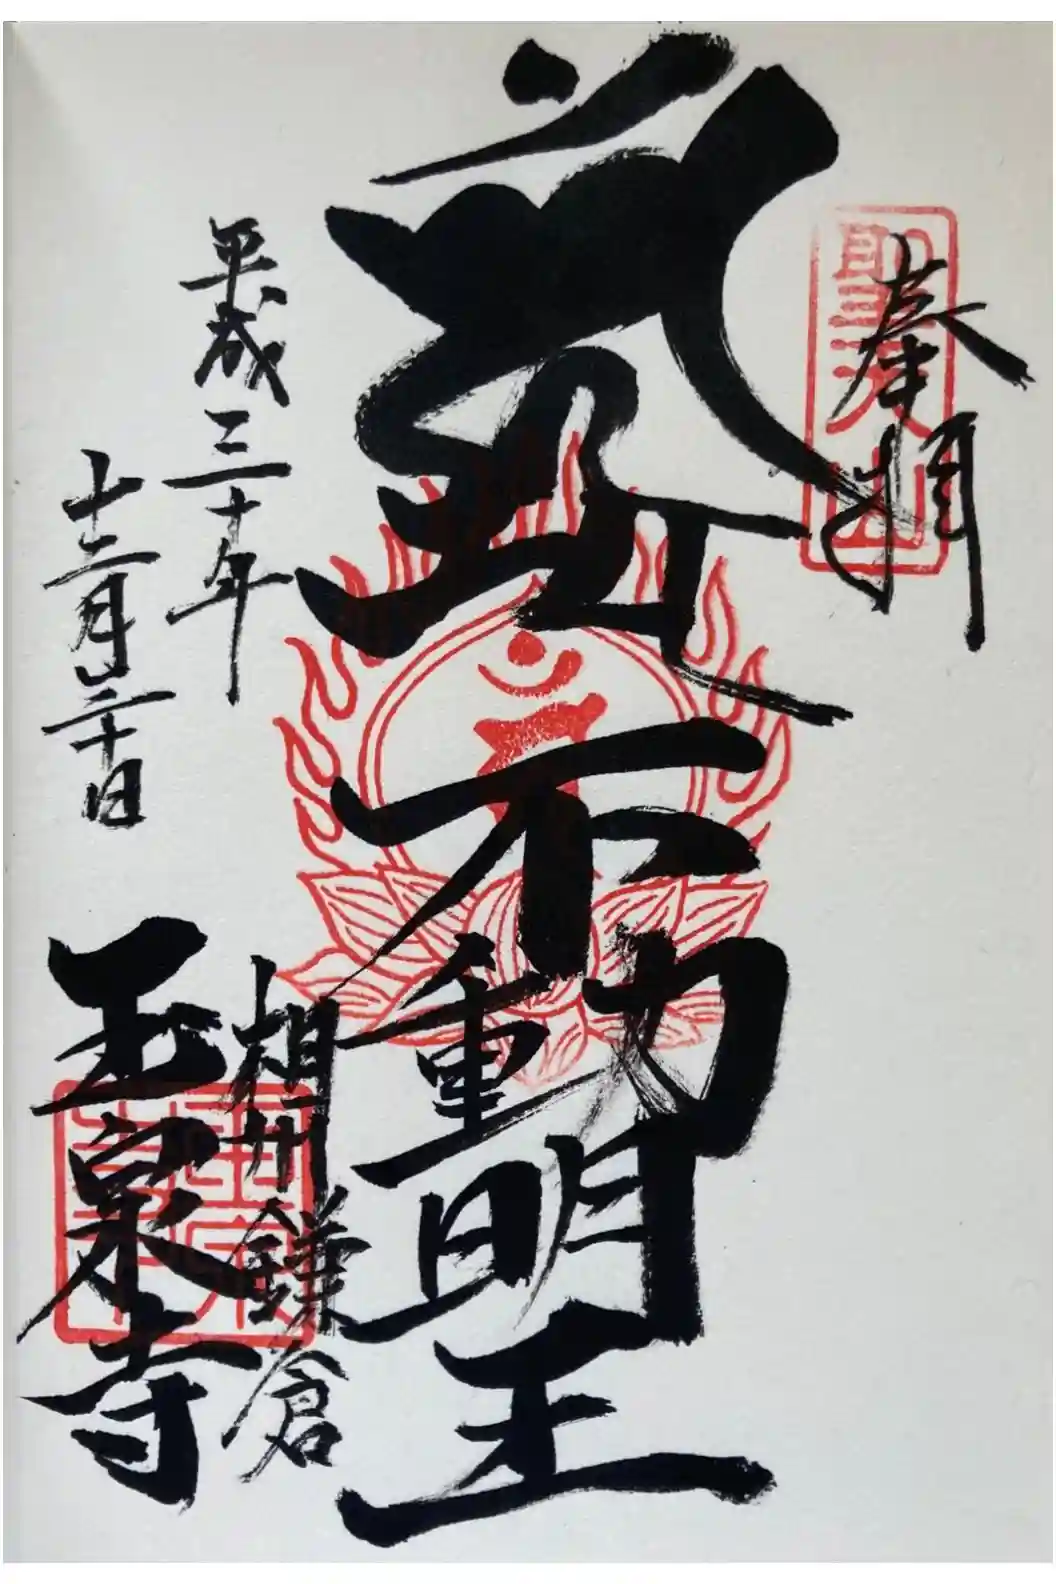 奉拝
聖天山
不動明王
平成三十年
十二月三十日
相州鎌倉
玉泉寺